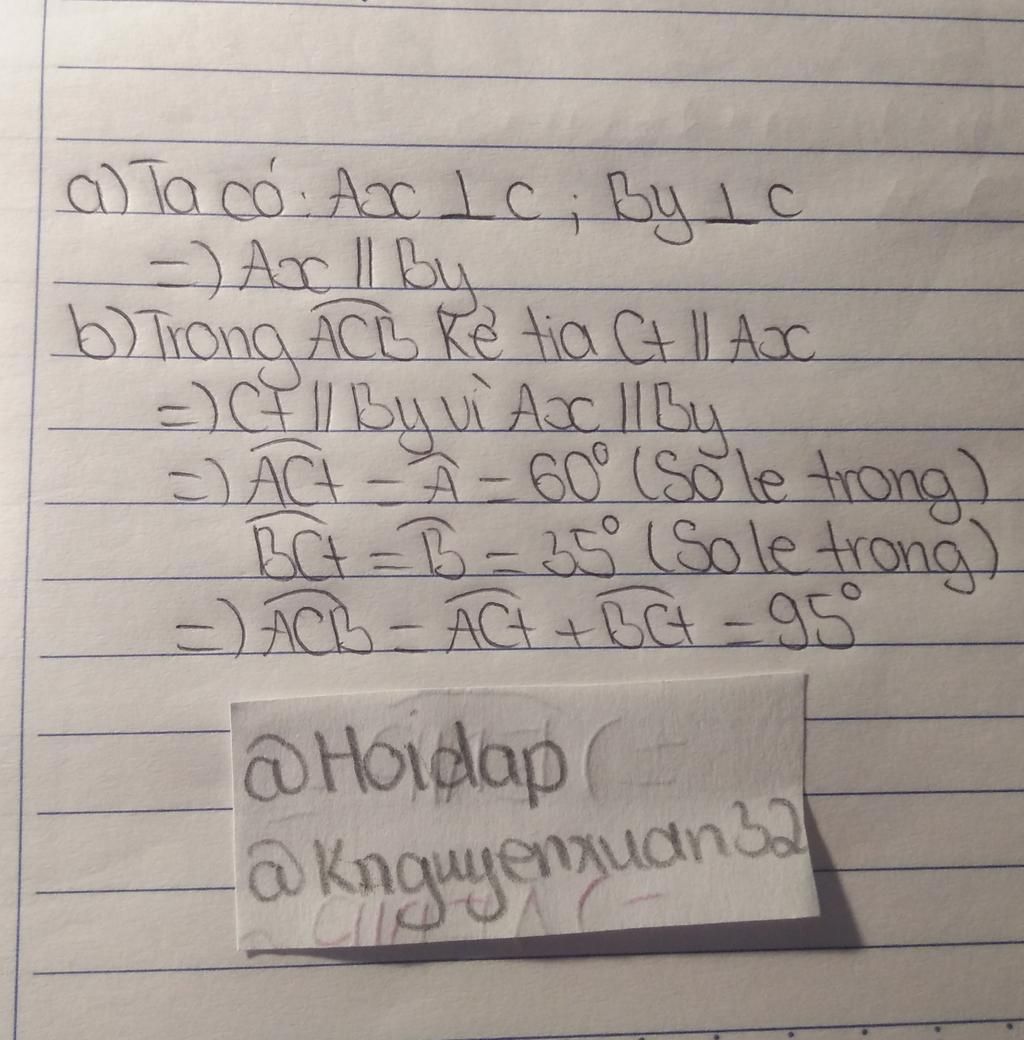 a) Ta có: Ax ⊥ c ; By ⊥ c
=) Ax // By
b) Trong ACB Kẻ tia Ct // Ax
=) Ct // By vì Ax // By
=) ACt = A = 60° (So le trong)
BCt = B = 35° (So le trong)
=) ACB = ACt + BCt = 95°
@Hoidap
@Knguyenxuan32